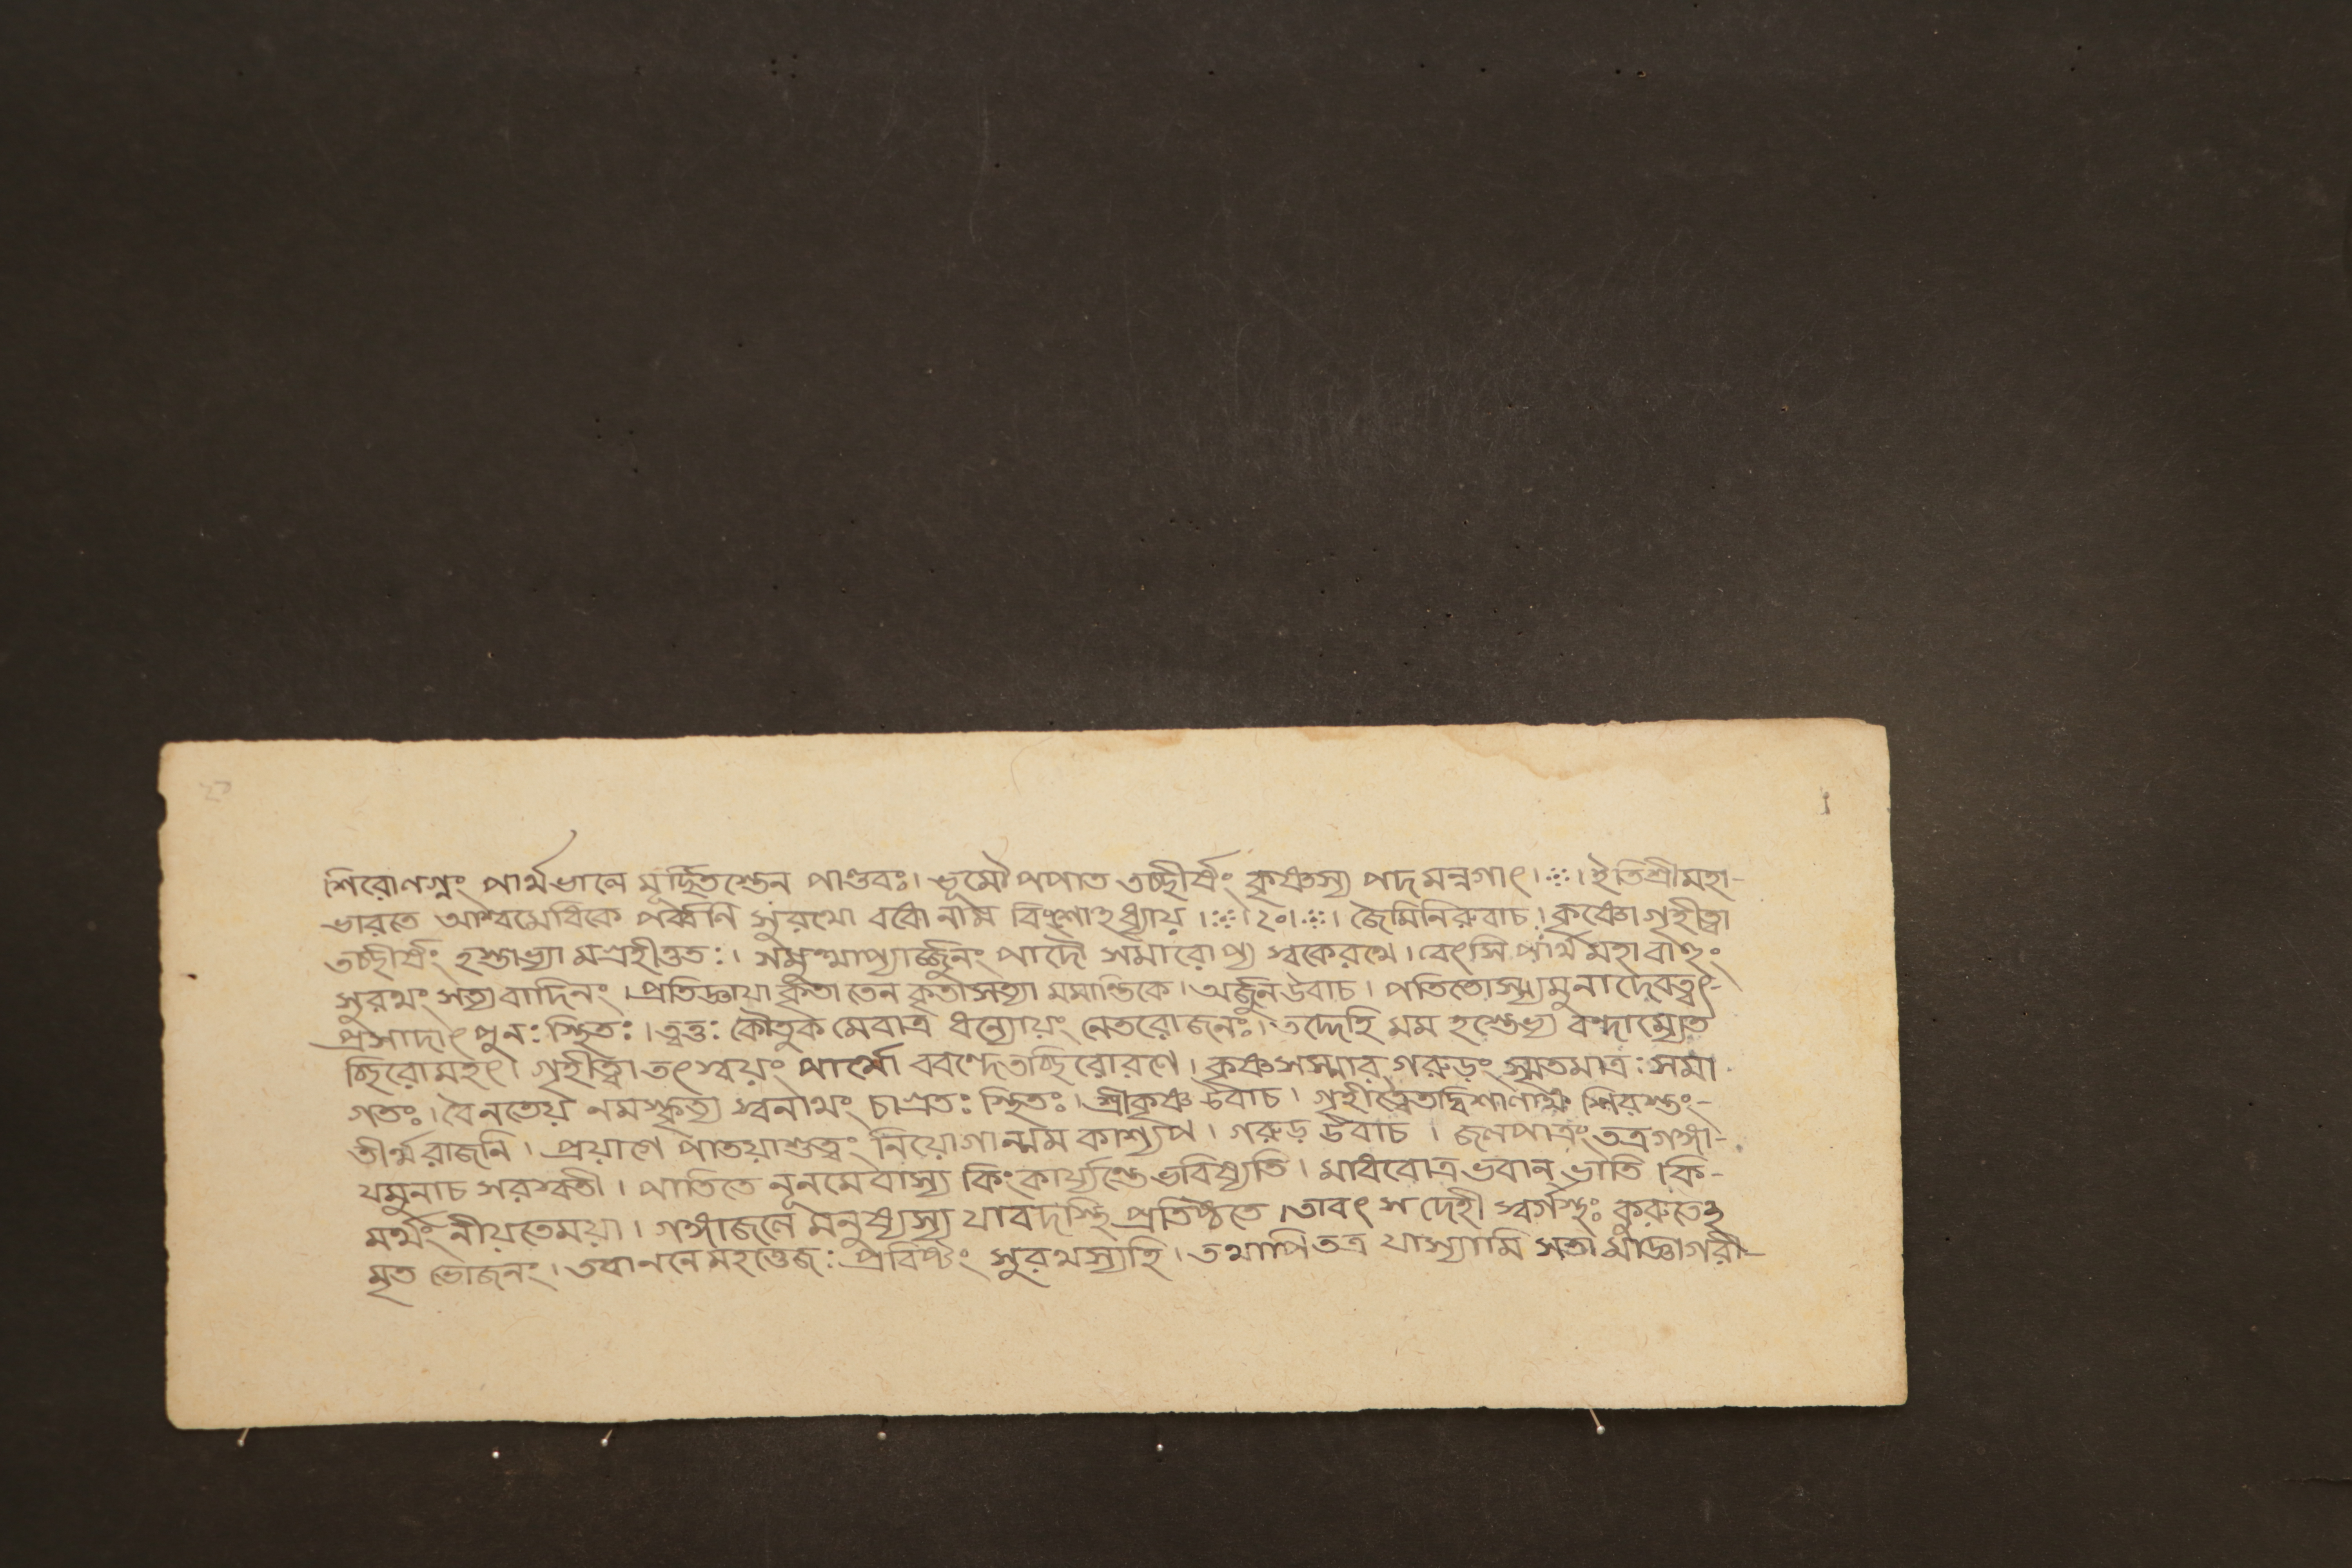 শিরোলগ্নং পার্থভালে মূর্চ্ছিতস্তেন পাণ্ডবঃ। ভূমৌ পপাত তচ্ছীর্ষং কৃষ্ণস্য পদমন্নগাৎ।※।ইতিশ্রীমহা-
ভারতে আশ্বমেধিকে পর্ব্বণি সুরথো বধো নাম বিংশোহধ্যায়।※।২০।※। জৈমিনিরুবাচ। কৃষ্ণো গৃহীত্বা
তচ্ছীর্ষং হস্তাভ্যা মগ্রহীত্ততঃ। সমুত্থাপ্যার্জ্জুনং পাদৌ সমারোপ্য স্বকেরথে। বেৎসি পার্থ মহাবাহুং
সুরথং সত্যবাদিনং। প্রতিজ্ঞায়া কৃতা তেন কৃতা সত্যা মমান্তিকে। অর্জুন উবাচ। পতিতোস্ম্যমুনাদেবত্বৎ-
প্রসাদাৎ পুনঃ স্থিতঃ। ত্বত্তঃ কৌতুক মেবাত্র ধন্যোয়ং নেতরোজনঃ। তদ্দেহি মম হস্তেভ্য বন্দাম্যেত
চ্ছিরোমহৎ। গৃহীত্বা তৎ স্বয়ং পার্থো ববন্দেতচ্ছিরোরণে। কৃষ্ণসস্মার গরুড়ং স্মৃতমাত্রঃ সমা
গতঃ। বৈনতেয় নমস্কৃত্য স্বনাথং চাগ্রতঃ স্থিতঃ। শ্রীকৃষ্ণ উবাচ। গৃহীত্বৈতদ্বিশালাক্ষ শিরস্ত্বং-
তীর্থরাজনি। প্রয়াগে পাতয়াশুত্বং নিয়োগান্মম কাশ্যপ। গরুড় উবাচ। জলপাত্রং তত্রগঙ্গা-
যমুনাচ সরস্বতী। পাতিতে নূনমেবাস্য কিংকার্য্যন্তেভবিষ্যতি। মাধবোত্র ভবান্ ভাতি কি-
মর্থং নীয়তেময়া। গঙ্গাজলে মনুষ্যস্য যাবদস্থি প্রতিষ্ঠতে। তাবৎ স দেহী স্বর্গস্থঃ কুরুতেহ
মৃত ভোজনং। তবাননে মহত্তেজঃ প্রবিষ্টং সুরথস্যহি। তথাপি তত্র যাস্যামি